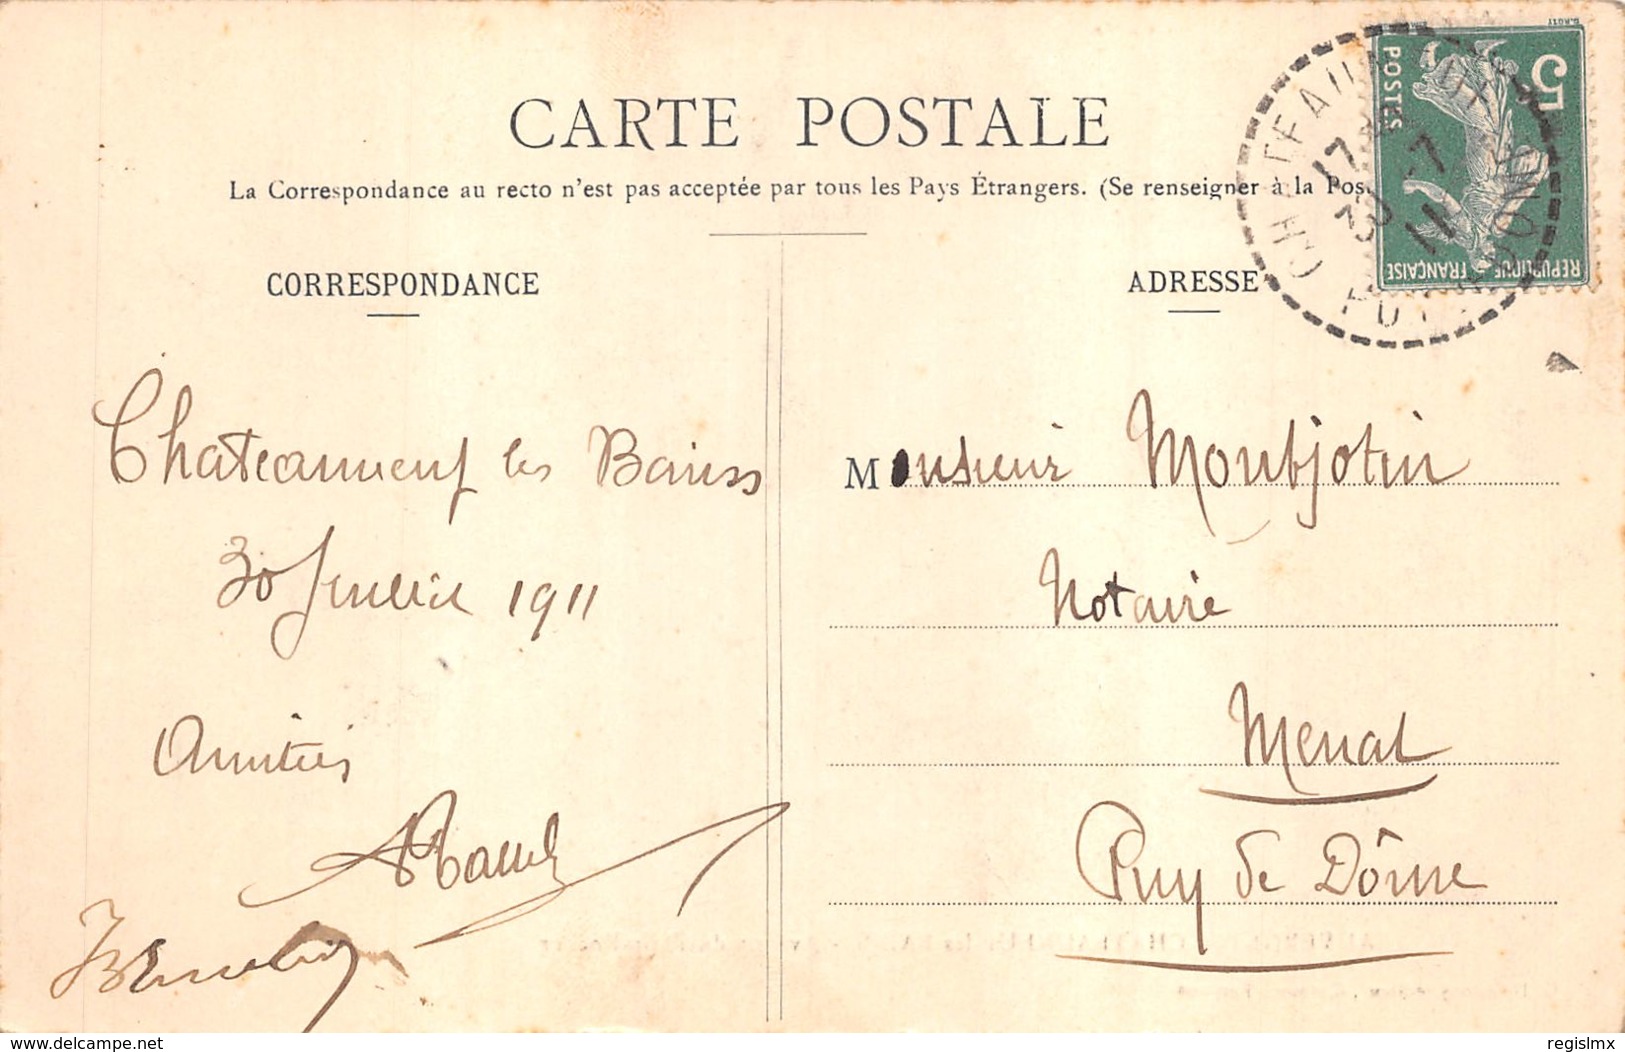 CARTE POSTALE
La Correspondance au recto n'est pas acceptée par tous les Pays Étrangers. (Se renseigner à la Pos
CORRESPONDANCE
ADRESSE
5
POSTES
REPUBLIQUE FRANÇAISE
17
30 -7
11
Chateauneuf les Bains
30 Juillet 1911
Amitiés
Monsieur Montjotin
Notaire
Menat
Puy de Dôme
www.delcampe.net
regislmx